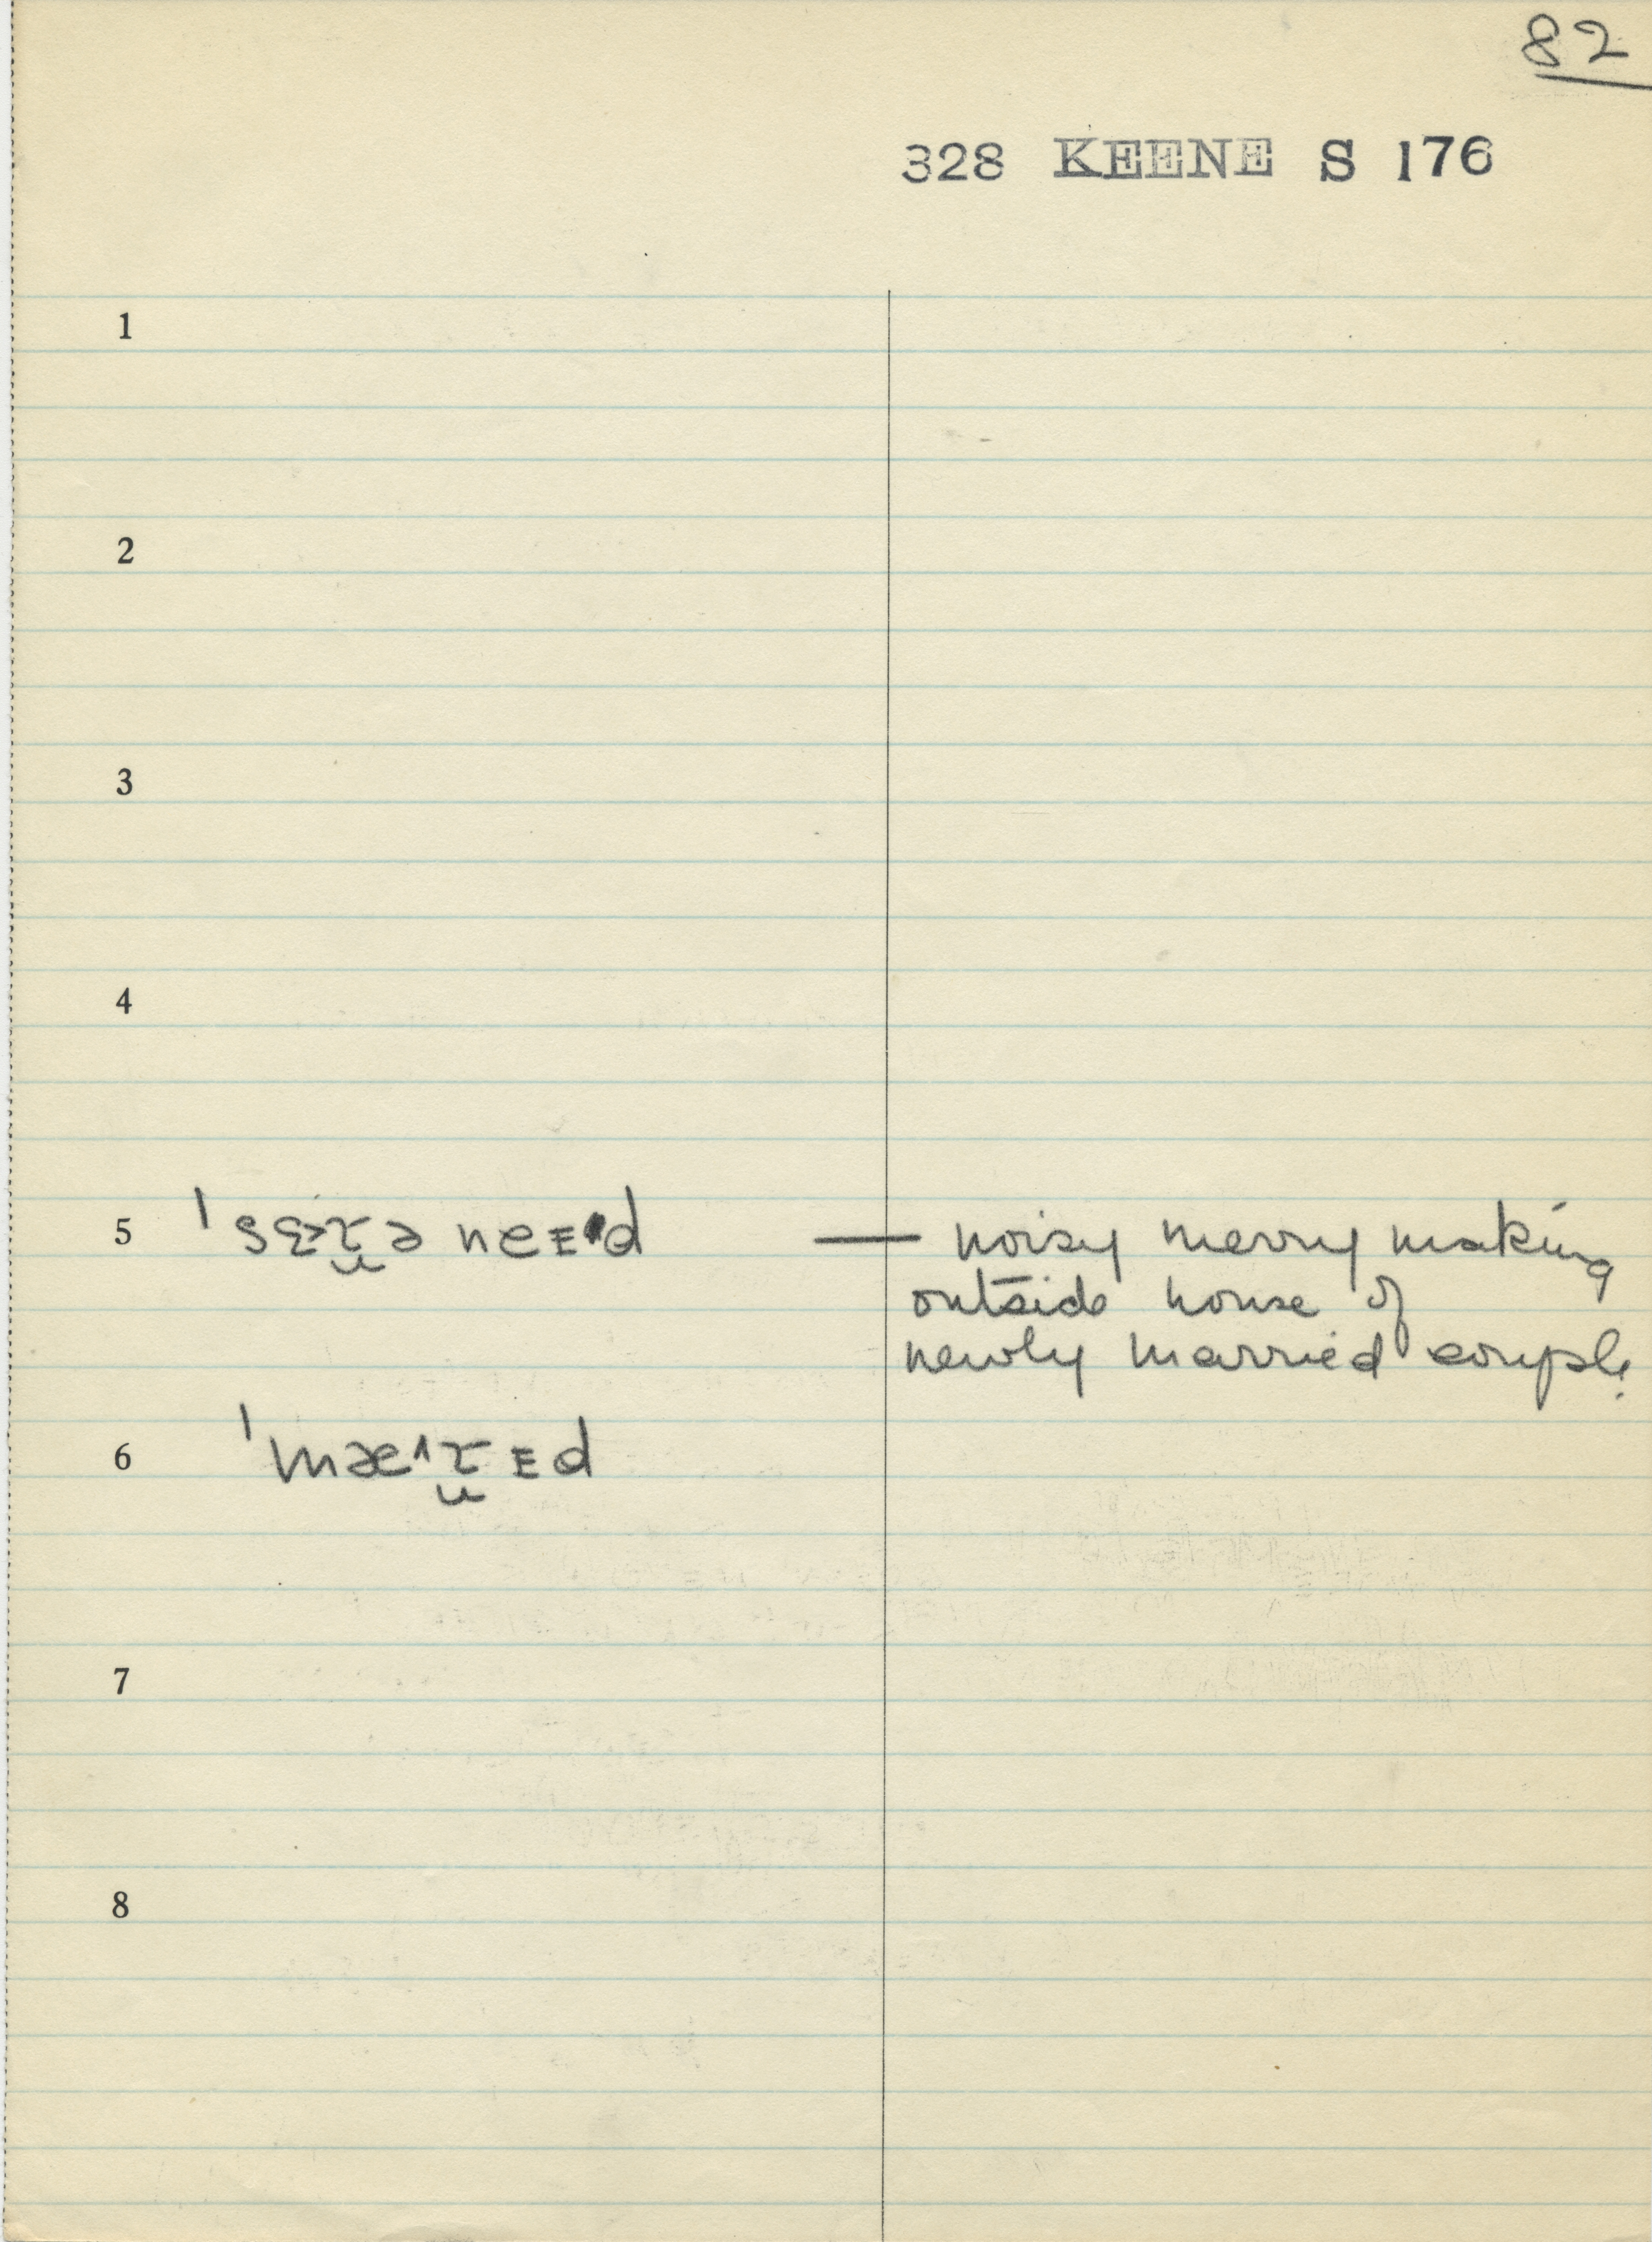 82
328 KEENE S 176
1
2
3
4
5 — noisy merry making
outside house of
newly married couple
6
7
8